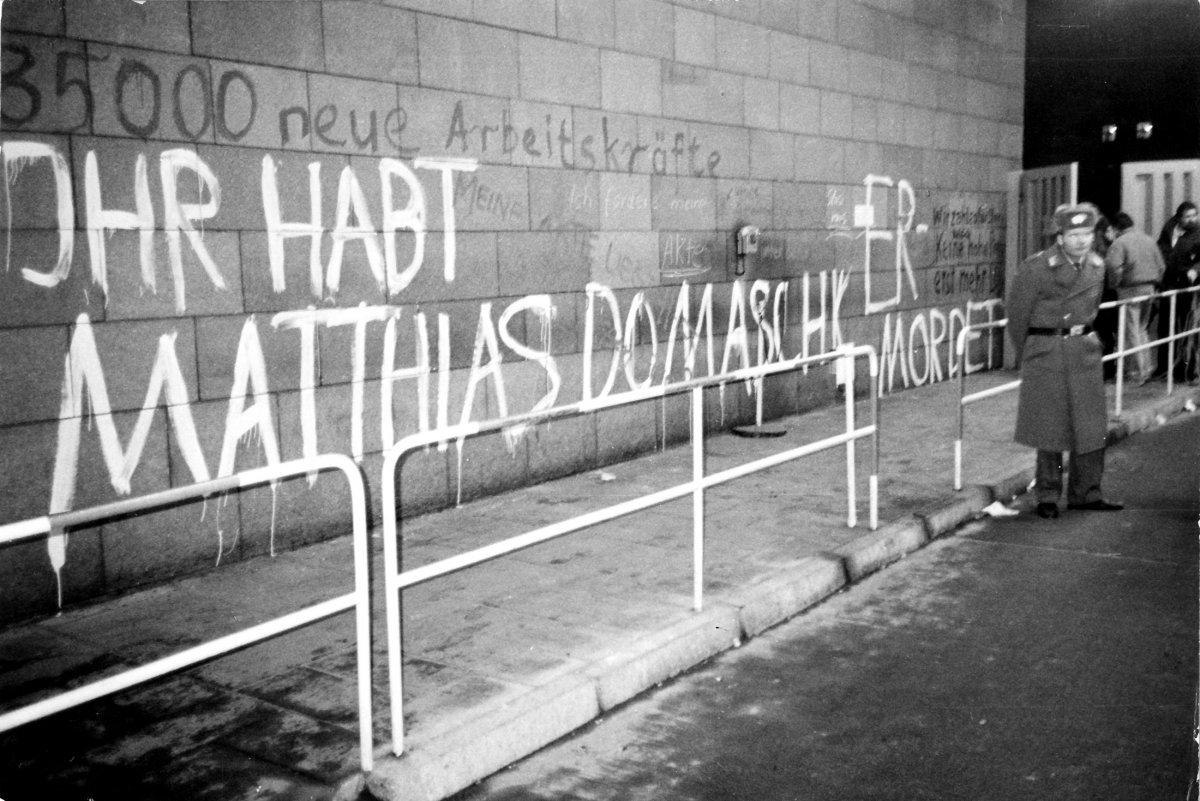 35000 neue Arbeitskräfte
IHR HABT
MEINE
Ich fordere meine
AKTE
ER-
MATTHIAS DOMASCHK
MORDET
Wir zahlen für
Keine
erst mehr